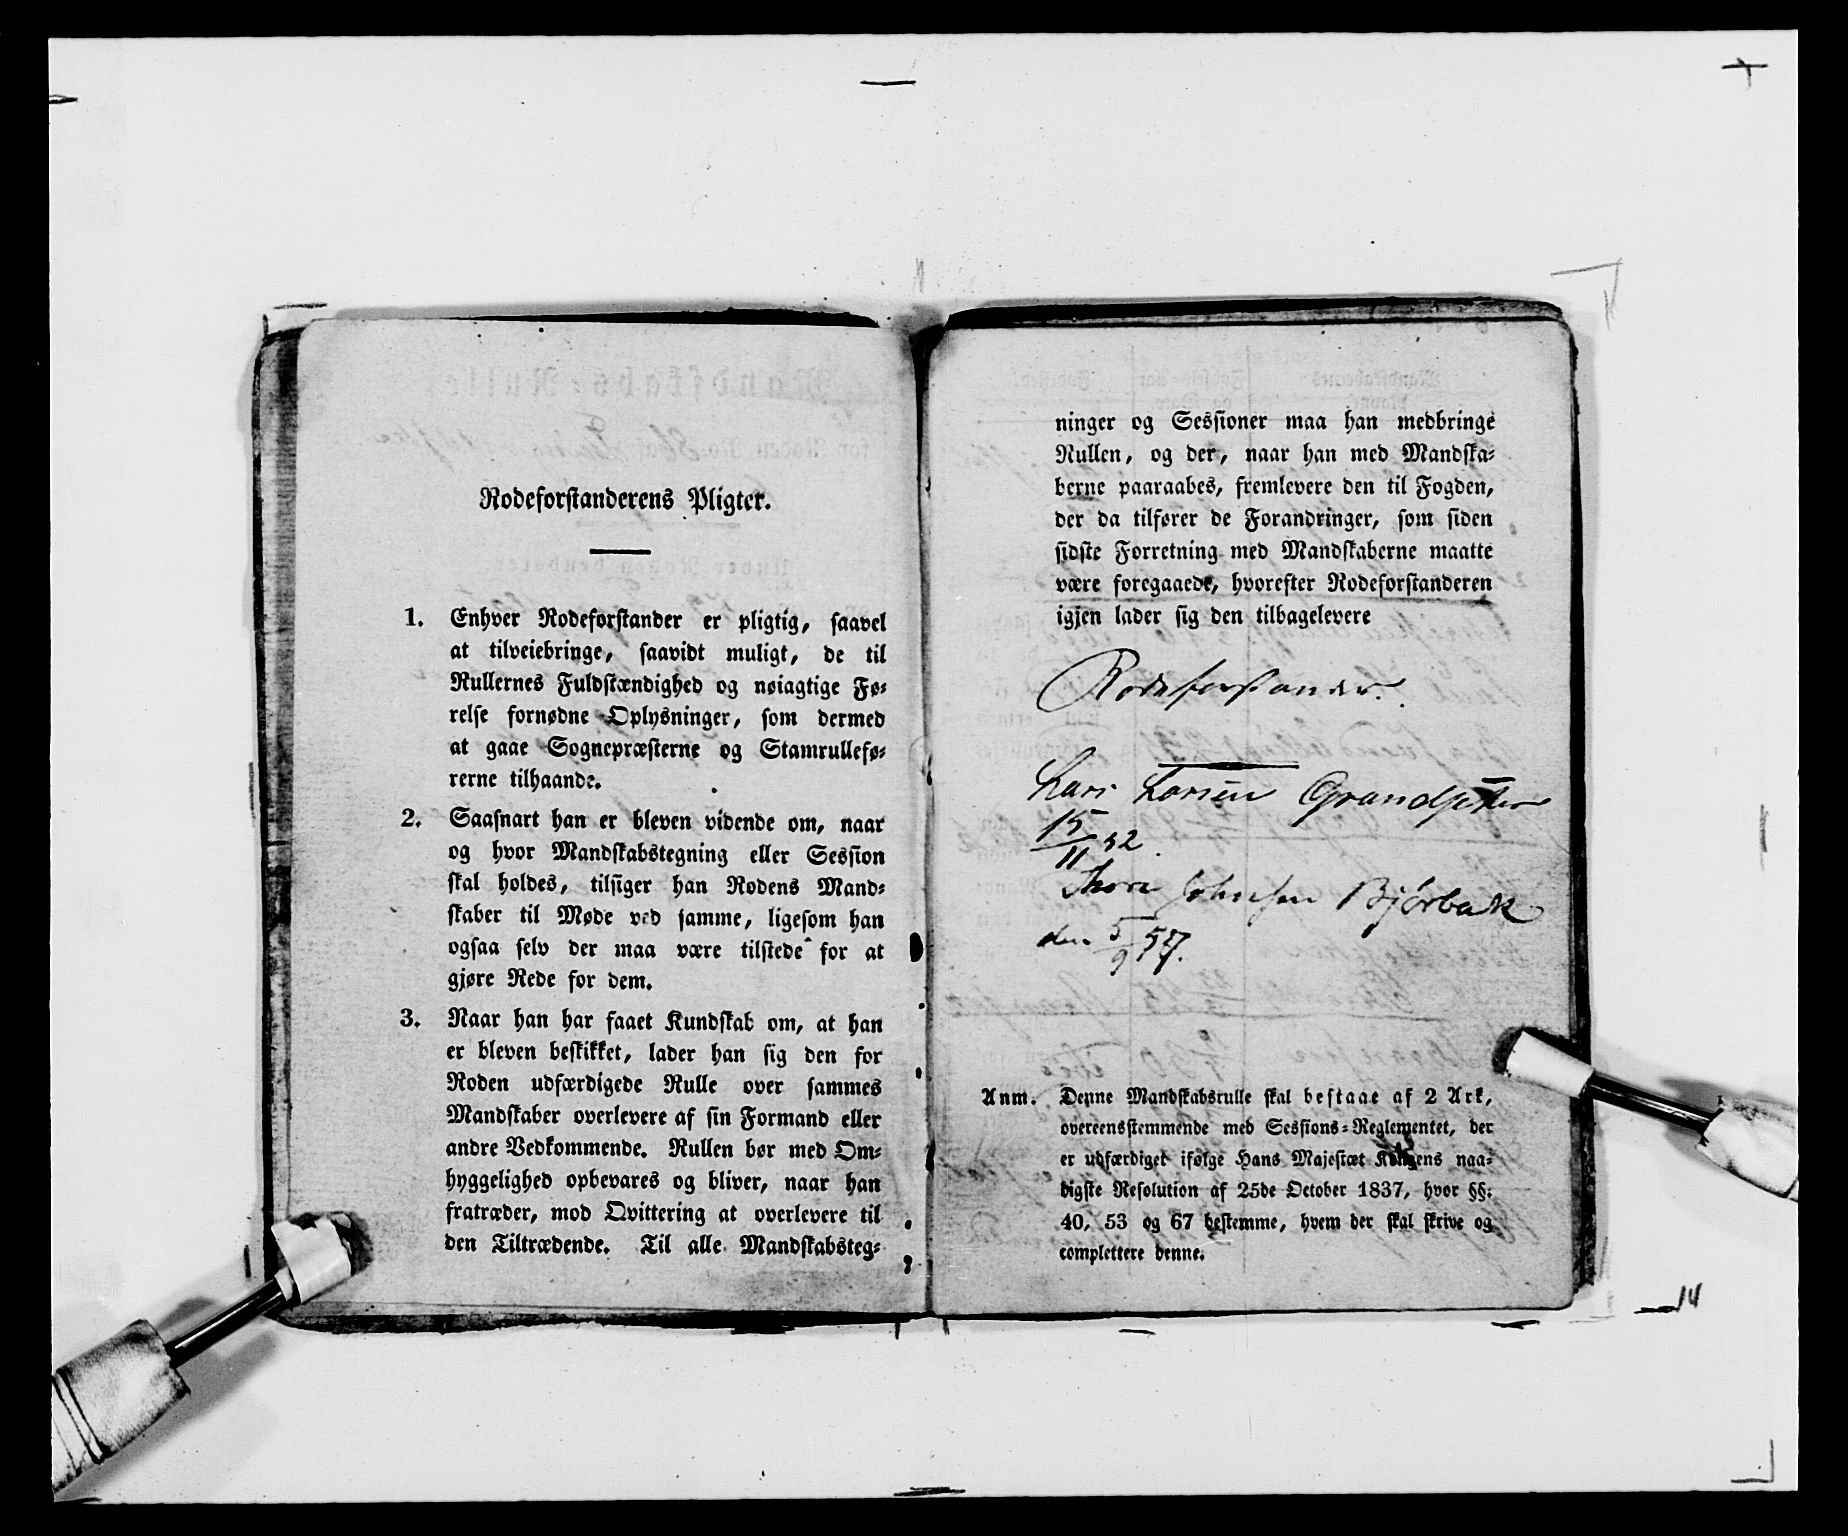 Rodeforstanderens Pligter.
1. Enhver Rodeforstander er pligtig, saavel
at tilveiebringe, saavidt muligt, de til
Rullernes Fuldstændighed og nøiagtige Fø-
relse fornødne Oplysninger, som dermed
at gaae Sognepræsterne og Stamrullefø-
rerne tilhaande.
2. Saasnart han er bleven vidende om, naar
og hvor Mandskabstegning eller Session
skal holdes, tilsiger han Rodens Mand-
skaber til Møde ved samme, ligesom han
ogsaa selv der maa være tilstede for at
gjøre Rede for dem.
3. Naar han har faaet Kundskab om, at han
er bleven beskikket, lader han sig den for
Roden udfærdigede Rulle over sammes
Mandskaber overlevere af sin Formand eller
andre Vedkommende. Rullen bør med Om-
hyggelighed opbevares og bliver, naar han
fratræder, mod Qvittering at overlevere til
den Tiltrædende. Til alle Mandskabsteg-
ninger og Sessioner maa han medbringe
Rullen, og der, naar han med Mandska-
berne paaraabes, fremlevere den til Fogden,
der da tilfører de Forandringer, som siden
sidste Forretning med Mandskaberne maatte
være foregaaede, hvorefter Rodeforstanderen
igjen lader sig den tilbagelevere
Rodeforstander.
Lars Larsen
15/11 52.
Thore Johnsen Bjørbæk
den 5/9 57.
Anm. Denne Mandskabsrulle skal bestaae af 2 Ark,
overeensstemmende med Sessions-Reglementet, der
er udfærdiget ifølge Hans Majestæt Kongens naa-
digste Resolution af 25de October 1837, hvor §§:
40, 53 og 67 bestemme, hvem der skal skrive og
complettere denne.
14